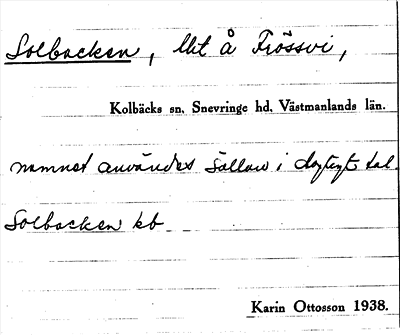 Solbacken, lht å Frössvi,
Kolbäcks sn, Snevringe hd, Västmanlands län.
namnet användes sällan i dagligt tal.
Solbacken kb
Karin Ottosson 1938.